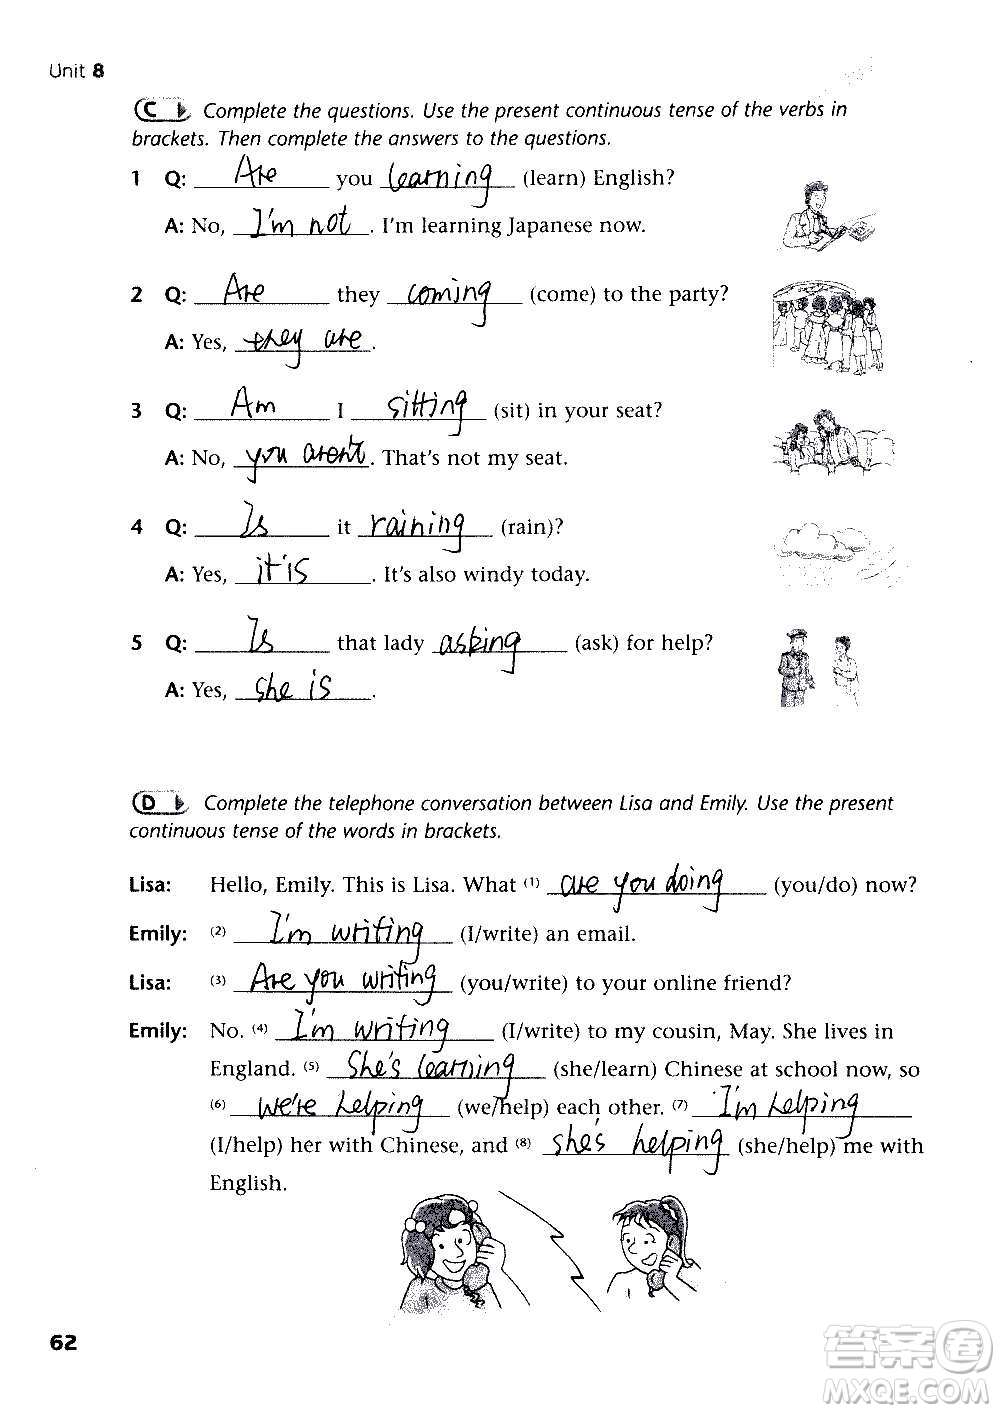 Unit 8
C Complete the questions. Use the present continuous tense of the verbs in
brackets. Then complete the answers to the questions.
1 Q: Are you learning (learn) English?
A: No, I'm not. I'm learning Japanese now.
2 Q: Are they coming (come) to the party?
A: Yes, they are.
3 Q: Am I sitting (sit) in your seat?
A: No, you aren't. That's not my seat.
4 Q: Is it raining (rain)?
A: Yes, it is. It's also windy today.
5 Q: Is that lady asking (ask) for help?
A: Yes, she is.
D Complete the telephone conversation between Lisa and Emily. Use the present
continuous tense of the words in brackets.
Lisa: Hello, Emily. This is Lisa. What (1) are you doing (you/do) now?
Emily: (2) I'm writing (I/write) an email.
Lisa: (3) Are you writing (you/write) to your online friend?
Emily: No. (4) I'm writing (I/write) to my cousin, May. She lives in
England. (5) She's learning (she/learn) Chinese at school now, so
(6) we're helping (we/help) each other. (7) I'm helping
(I/help) her with Chinese, and (8) she's helping (she/help) me with
English.
62
答案圈
MXQE.COM